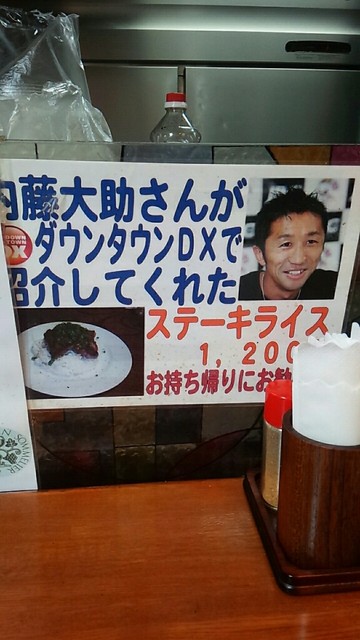 内藤大助さんが
ダウンタウンDXで
紹介してくれた
ステーキライス
1,200
お持ち帰りにお勧